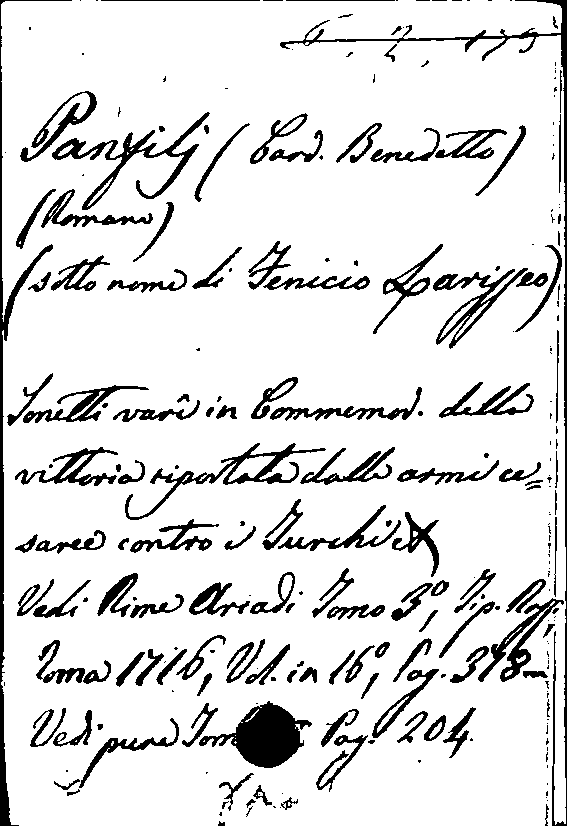 6. 2. 179
Panfilj (Card. Benedetto)
(Romano)
(sotto nome di Fenicio Larisseo)
Sonetti varî in Commemor. della
vittoria riportata dalle armi ce=
saree contro i Turchi
Vedi Rime Arcadi Tomo 3º, Tip. Rossi,
Roma 1716, Vol. in 16º, Pag. 378
Vedi pure Pag. 204.